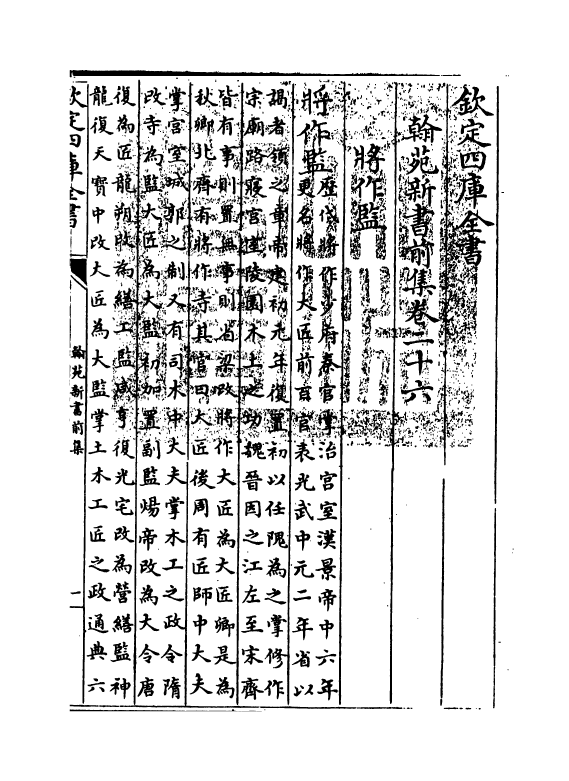 欽定四庫全書
翰苑新書前集卷二十六
將作監
將作監歷代將作少府秦官掌治宮室漢景帝中六年
更名將作大匠前百官表光武中元二年省以
謁者領之章帝建初元年復置初以任隗為之掌修作
宗廟路寢宮室陵園木土之功魏晉因之江左至宋齊
皆有事則置無事則省梁改將作大匠為大匠卿是為
秋卿北齊有將作寺其官曰大匠後周有匠師中大夫
掌宮室城郭之制又有司木中大夫掌木工之政令隋
改寺為監大匠為大監初加置副監煬帝改為大令唐
復為匠龍朔改為繕工監咸亨復光宅改為營繕監神
龍復天寶中改大匠為大監掌土木工匠之政通典六
欽定四庫全書
翰苑新書前集
一